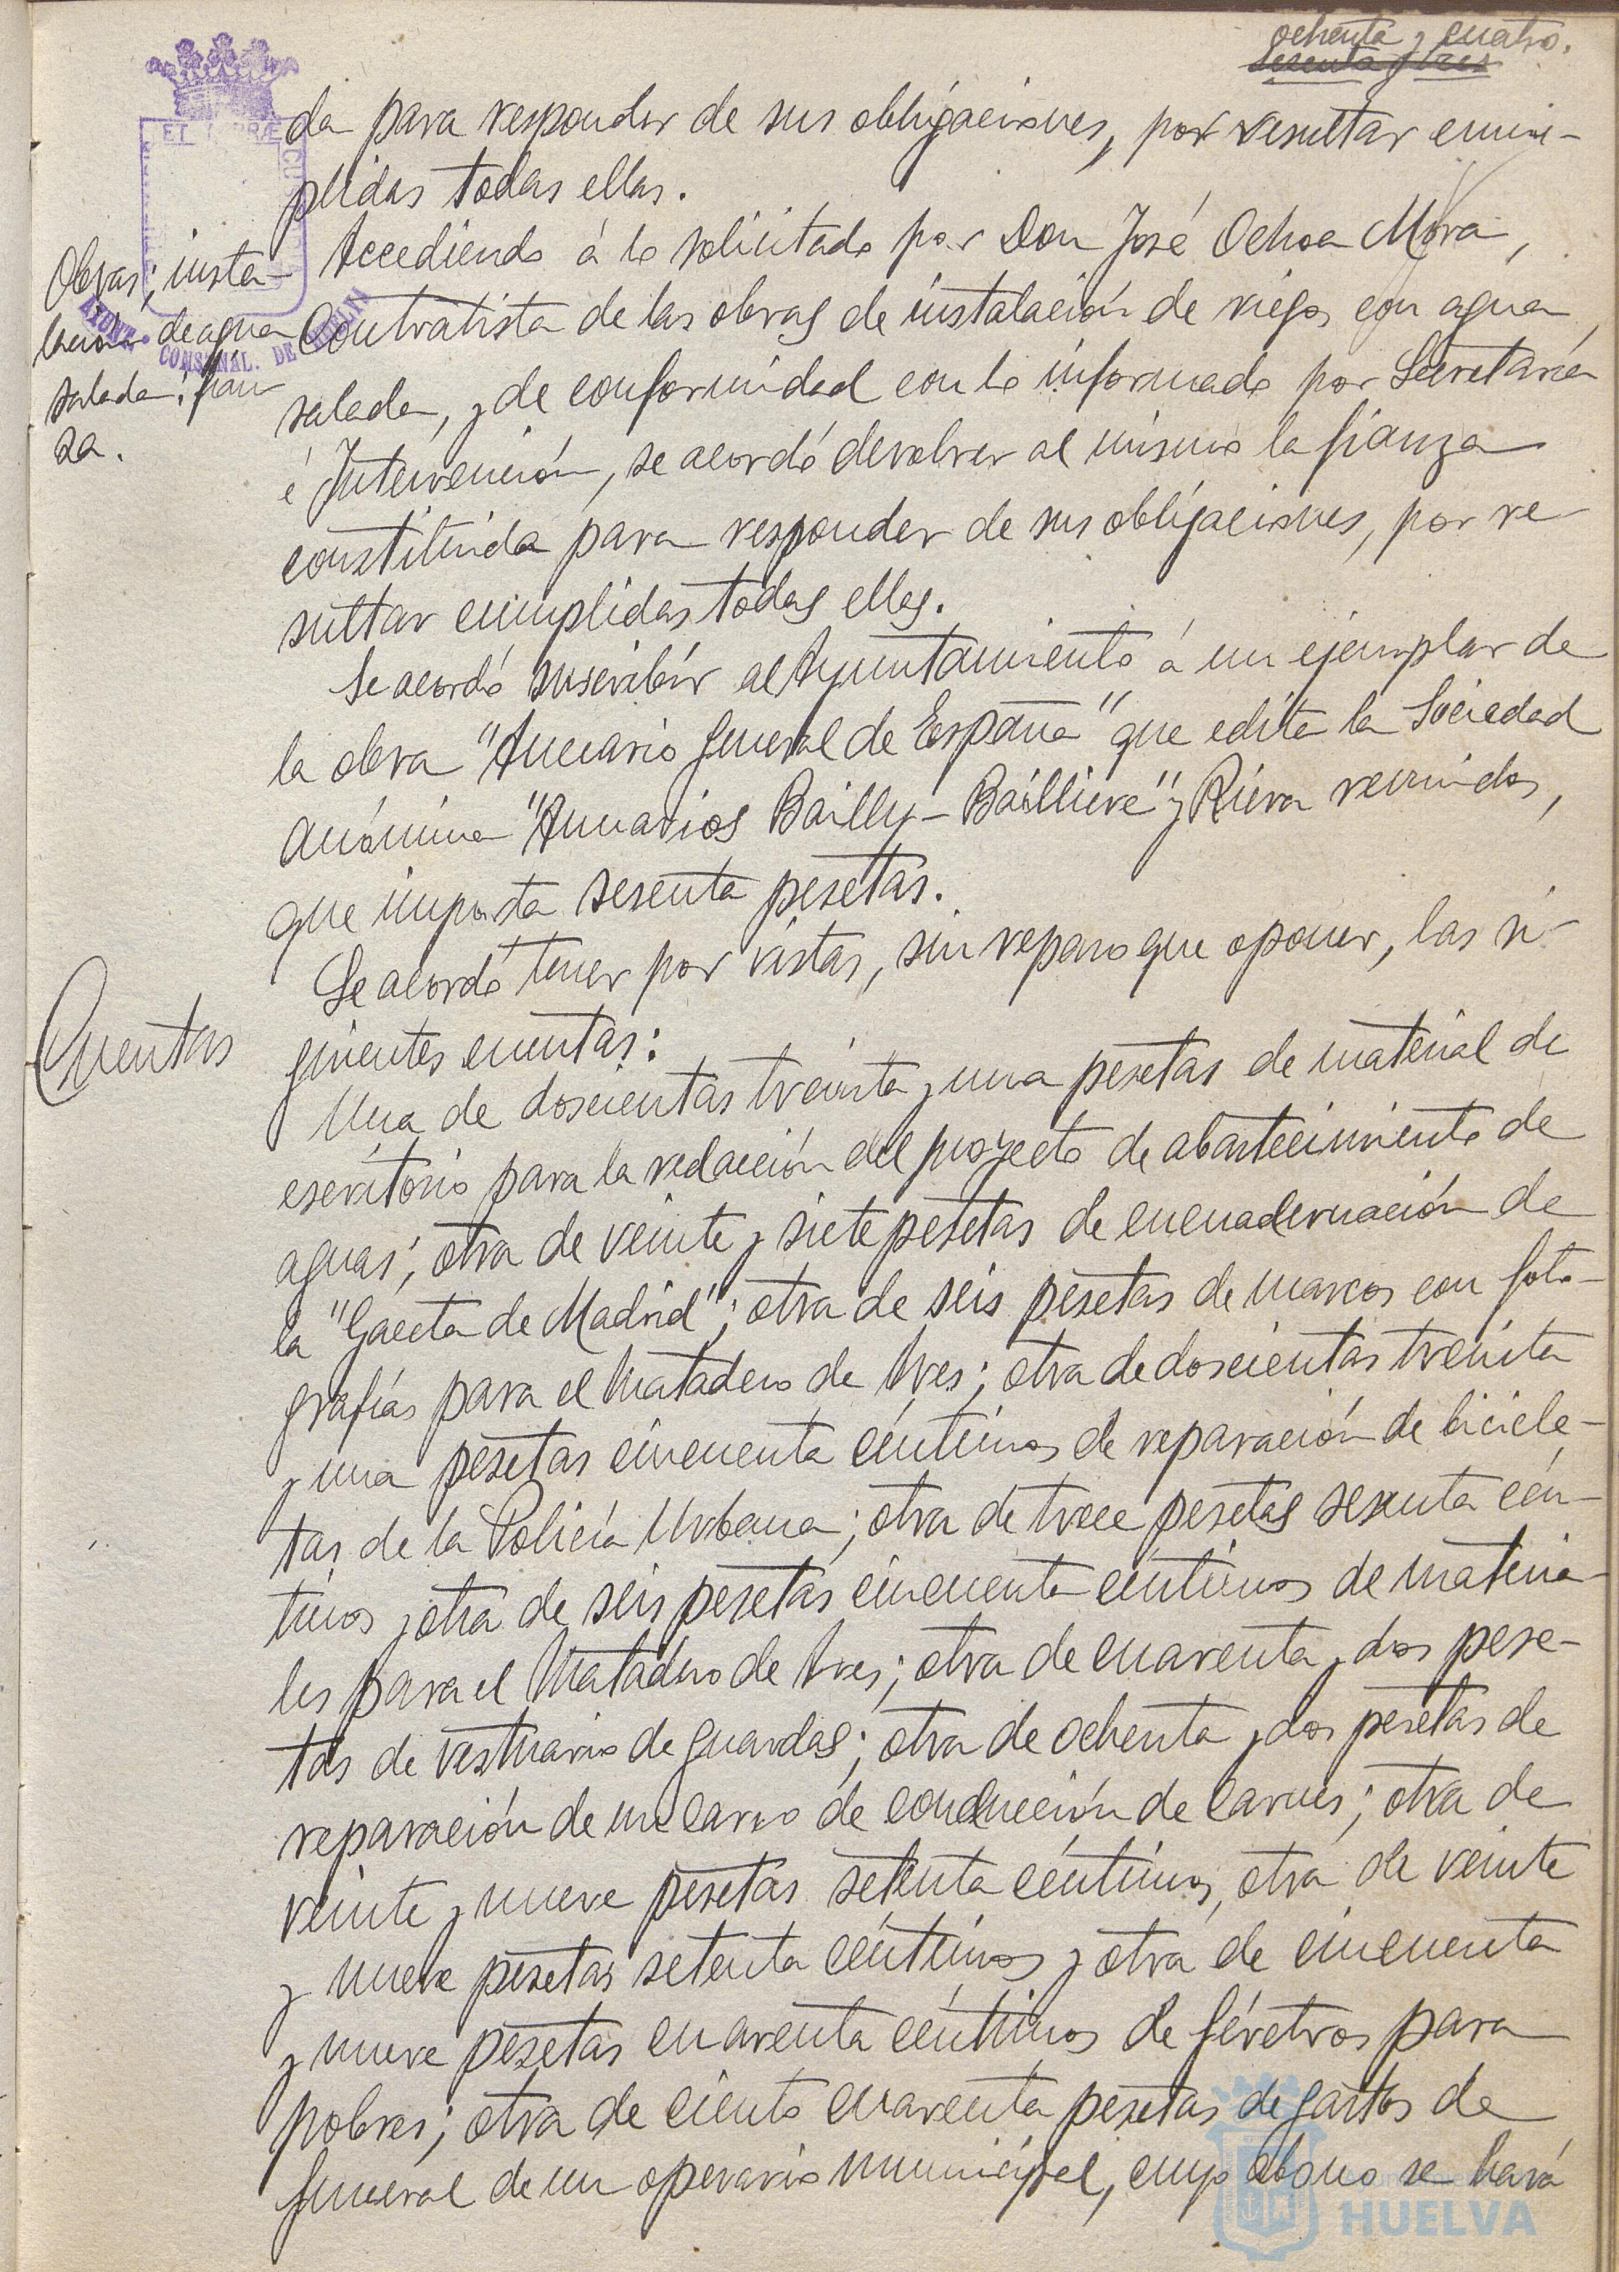 ochenta y cuatro.
Sesenta y tres
da para responder de sus obligaciones, por resultar cum-
plidas todas ellas.
Obras; insta-
lación de agua
salada; fian-
za.
Accediendo á lo solicitado por Don José Ochoa Mora,
Contratista de las obras de instalación de riego con agua
salada, y de conformidad con lo informado por Secretaría
é Intervención, se acordó devolver al mismo la fianza
constituida para responder de sus obligaciones, por re-
sultar cumplidas todas ellas.
Se acordó suscribir al Ayuntamiento á un ejemplar de
la obra "Anuario General de España" que edita la Sociedad
anónima "Anuarios Bailly-Bailliere" y Riera reunidos,
que importa sesenta pesetas.
Se acordó tener por vistas, sin reparo que oponer, las si-
Cuentas
guientes cuentas:
Una de doscientas treinta y una pesetas de material de
escritorio para la redacción del proyecto de abastecimiento de
aguas; otra de veinte y siete pesetas de encuadernación de
la "Gaceta de Madrid"; otra de seis pesetas de marcos con foto-
grafías para el Matadero de tres; otra de doscientas treinta
y una pesetas cincuenta céntimos de reparación de bicicle-
tas de la Policía Urbana; otra de trece pesetas sesenta cén-
timos y otra de seis pesetas cincuenta céntimos de materia-
les para el Matadero de tres; otra de cuarenta y dos pese-
tas de vestuario de guardas; otra de ochenta y dos pesetas de
reparación de un carro de conducción de carnes; otra de
veinte y nueve pesetas setenta céntimos, otra de veinte
y nueve pesetas setenta céntimos y otra de cincuenta
y nueve pesetas cuarenta céntimos de féretros para
pobres; otra de ciento cuarenta pesetas de gastos de
funeral de un operario municipal, cuyo abono se hará
AYUNT. CONSTNAL. DE HUELVA
HUELVA